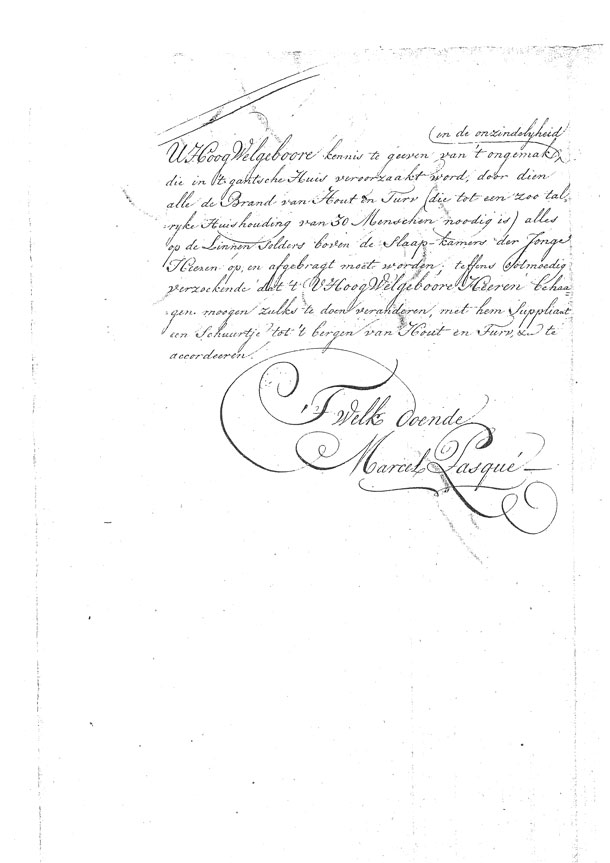 (en de onzindelyheid
UHoogWelgeboore kennis te geeven van 't ongemak
die in 't gantsche Huis veroorzaakt word, door dien
alle de Brand van Hout en Turv (die tot een zoo tal,
ryke Huishouding van 30 Menschen noodig is) alles
op de Linnen Solders boven de Slaap-kamers der Jonge
Heeren op, en afgebragt moet worden; teffens Ootmoedig
verzoekende dat 't UHoogWelgeboore Heeren behaa=
gen moogen zulks te doen veranderen, met hem Suppliant
een Schuurtje tot 't bergen van Hout en Turv, te
accordeeren.
'T Welk doende
Marcel Pasqué —